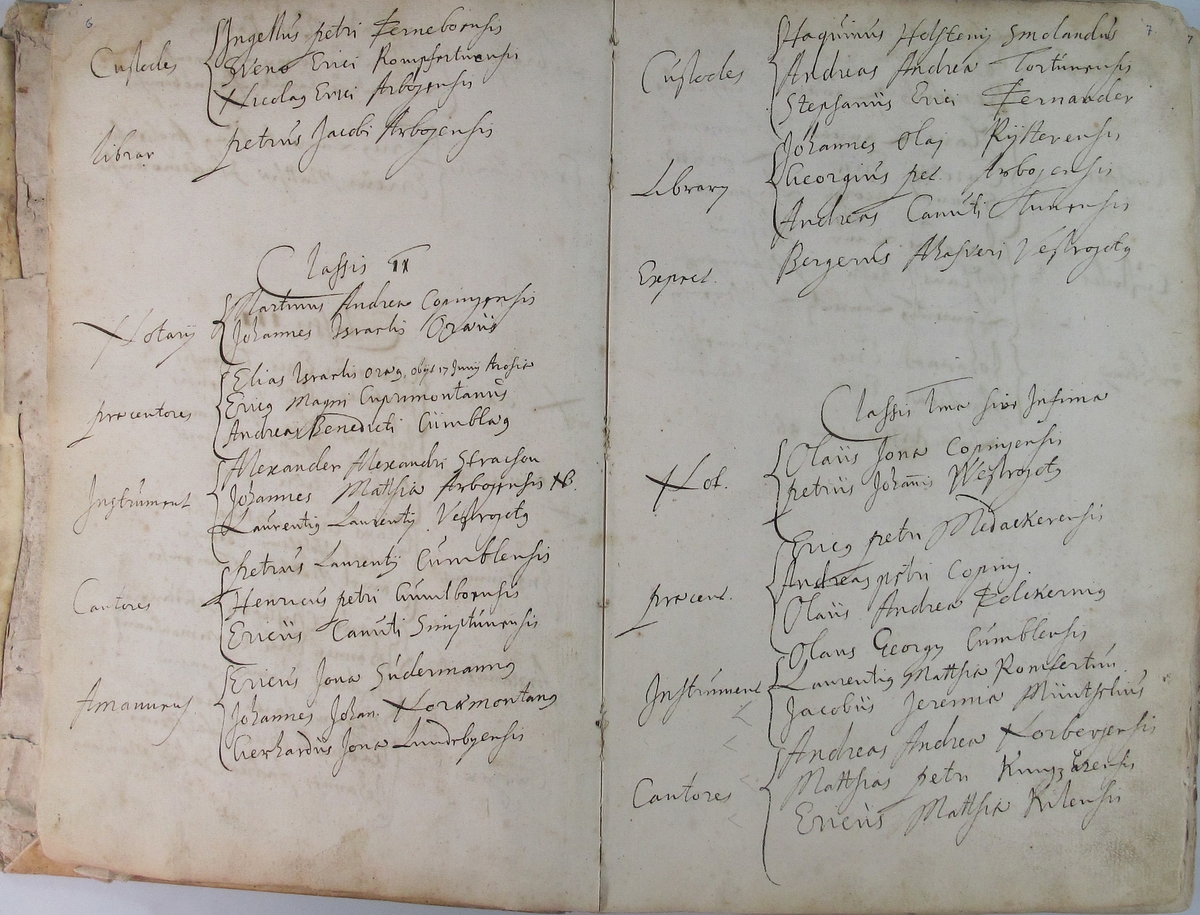 6
Custodes
Ingellus petri Ferneboensis
Sveno Erici Romfertunensis
Nicolaus Erici Arbogensis
librar petrus Jacobi Arbogensis
Classis II
Notarij
Martinus Andreæ Copingensis
Johannes Israelis Oraus
præcentores
Elias Israelis Oraus, obijt 17 Junij Arosiæ
Ericus Magni Cuprimontanus
Andreas Benedicti Cumblaus
Instrument
Alexander Alexandri Strachon
Johannes Matthiæ Arbogensis NB.
Laurentius Laurentij Vestrogotus
Cantores
Petrus Laurentij Cumblensis
Henricus petri
Ericus Canuti Simptunensis
Ericus Jonæ Sudermannus
Johannes Johan. Noræmontanus
Gerhardus Jonæ Lundebyensis
7
Custodes
Haquinus Holstenij Smolandus
Andreas Andreæ Tortunensis
Stephanus Erici Fernander
Library
Johannes Olaj
Georgius pet. Arbogensis
Andreas Canuti Tunensis
Bergerus Ahasveri Vestrogotus
Classis Ima sive Infima
Not.
Olaus Jonæ Copingensis
petrus Johannis Westrogotus
Ericus petri Medackerensis
præcent.
Andreas petri Coping.
Olaus Andreæ
Olaus Georgij Cumblensis
Instrument
Laurentius Matthiæ Romfertun.
Jacobus Jeremiæ
Cantores
Andreas Andreæ Norbergensis
Matthias petri
Ericus Matthiæ Kilensis